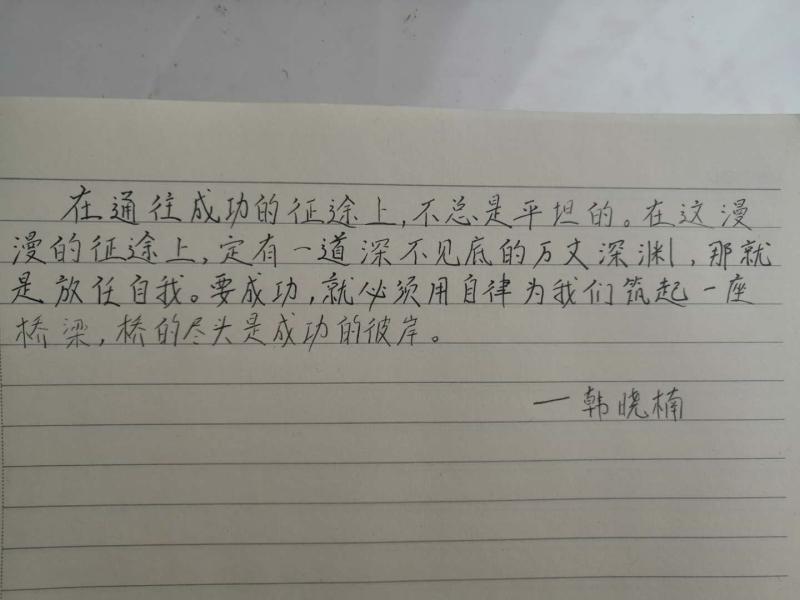 在通往成功的征途上,不总是平坦的。在这漫
漫的征途上,定有一道深不见底的万丈深渊,那就
是放任自我。要成功,就必须用自律为我们筑起一座
桥梁,桥的尽头是成功的彼岸。
一韩晓楠